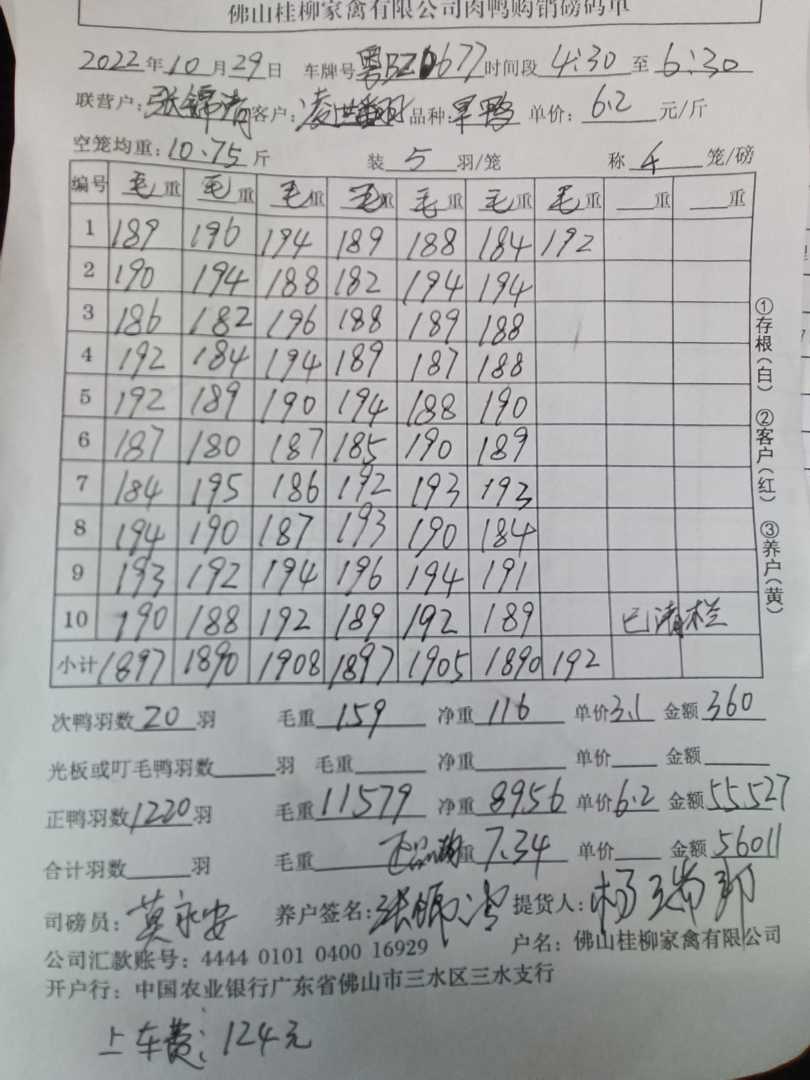 佛山桂柳家禽有限公司肉鸭购销磅码单
2022年10月29日 车牌号粤BZ0677时间段4:30至6:30
联营户:张锦清 客户: 品种:旱鸭 单价:6.2元/斤
空笼均重:10.75斤 装5羽/笼 称4笼/磅
编号 毛重 毛重 毛重 毛重 毛重 毛重 毛重 重 重
1 189 196 194 189 188 184 192
2 190 194 188 182 194 194
3 186 182 196 188 189 188
4 192 184 194 189 187 188
5 192 189 190 194 188 190
6 187 180 187 185 190 189
7 184 195 186 192 193 193
8 194 190 187 193 190 184
9 193 192 194 196 194 191
10 190 188 192 189 192 189 已清栏
小计 1897 1890 1908 1897 1905 1890 192
①存根(白) ②客户(红) ③养户(黄)
次鸭羽数20羽 毛重159 净重116 单价3.1 金额360
光板或叮毛鸭羽数 羽 毛重 净重 单价 金额
正鸭羽数1220羽 毛重11579 净重8956 单价6.2 金额55527
合计羽数 羽 毛重 重7.34 单价 金额56011
司磅员:莫永安 养户签名:张锦清 提货人:
公司汇款账号:4444 0101 0400 16929 户名:佛山桂柳家禽有限公司
开户行:中国农业银行广东省佛山市三水区三水支行
上车费:124元